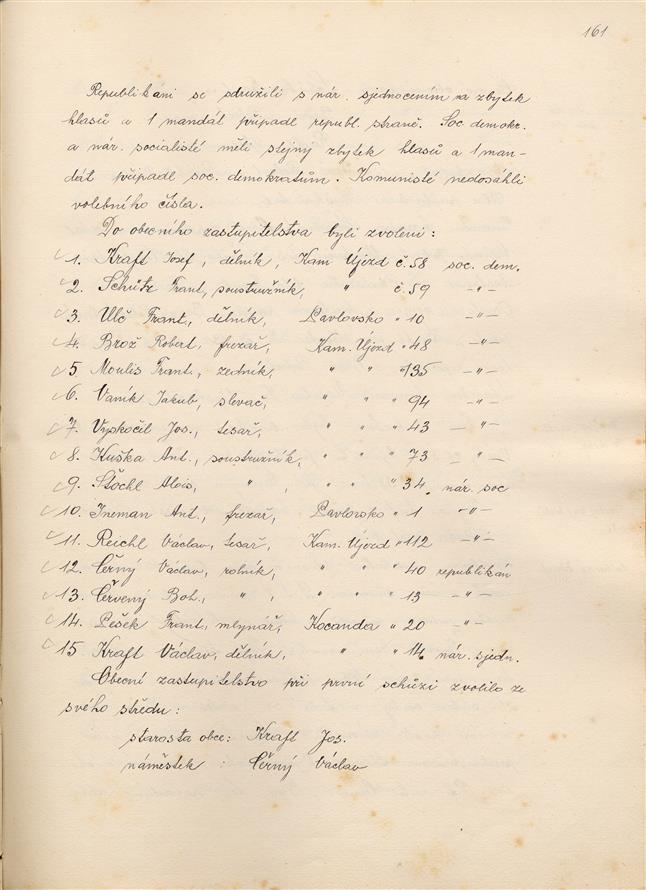 161
Republikáni se sdružili s nár. sjednocením a zbytek
hlasů a 1 mandát připadl republ. straně. Soc. demokr.
a nár. socialisté měli stejný zbytek hlasů a 1 man-
dát připadl soc. demokratům. Komunisté nedosáhli
volebního čísla.
Do obecního zastupitelstva byli zvoleni:
1. Kraft Josef, dělník, Kam Újezd č. 58 soc. dem.
2. Schütz Frant, soustružník, " č. 59 -"-
3. Ulč Frant., dělník, Pavlovsko " 10 -"-
4. Brož Robert, frezař, Kam. Újezd " 48 -"-
5 Moulis Frant., zedník, " " " 135 -"-
6. Vaník Jakub, slevač, " " " 94 -"-
7. Vyskočil Jos., tesař, " " " 43 -"-
8. Kuška Ant., soustružník, " " " 73 -"-
9. Štöchl Alois, " , " " " 34. nár. soc
10. Ineman Ant., frezař, Pavlovsko " 1 -"-
11. Reichl Václav, tesař, Kam. Újezd " 112 -"-
12. Černý Václav, rolník, " " " 40 republikán
13. Červený Boh., " , " " " 13 -"-
14. Pešek Frant, mlynář, Kocanda " 20 -"-
15 Kraft Václav, dělník, " " 14. nár. sjedn.
Obecní zastupitelstvo při první schůzi zvolilo ze
svého středu:
starosta obce: Kraft Jos.
náměstek : Černý Václav